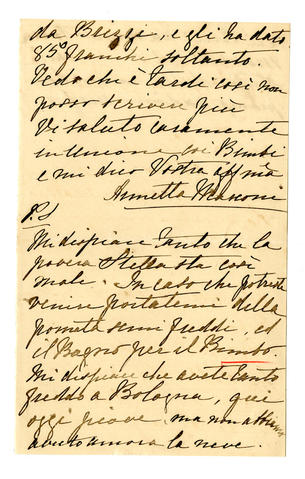 da Brizzi, e gli ha dato
85° franchi soltanto.
Vedo che è tardi così non
posso scrivere più
Vi saluto caramente
in unione coi Bimbi
e mi dico Vostra affma
Annetta
P.S
Mi dispiace tanto che la
povera Stella sta così
male. In caso che potreste
venire portatemi della
pometa semi freddi, ed
il Bagno per il Bimbo
Mi dispiace che avete tanto
freddo a Bologna, qui
oggi piove ma non abbiamo
avuto ancora la neve.